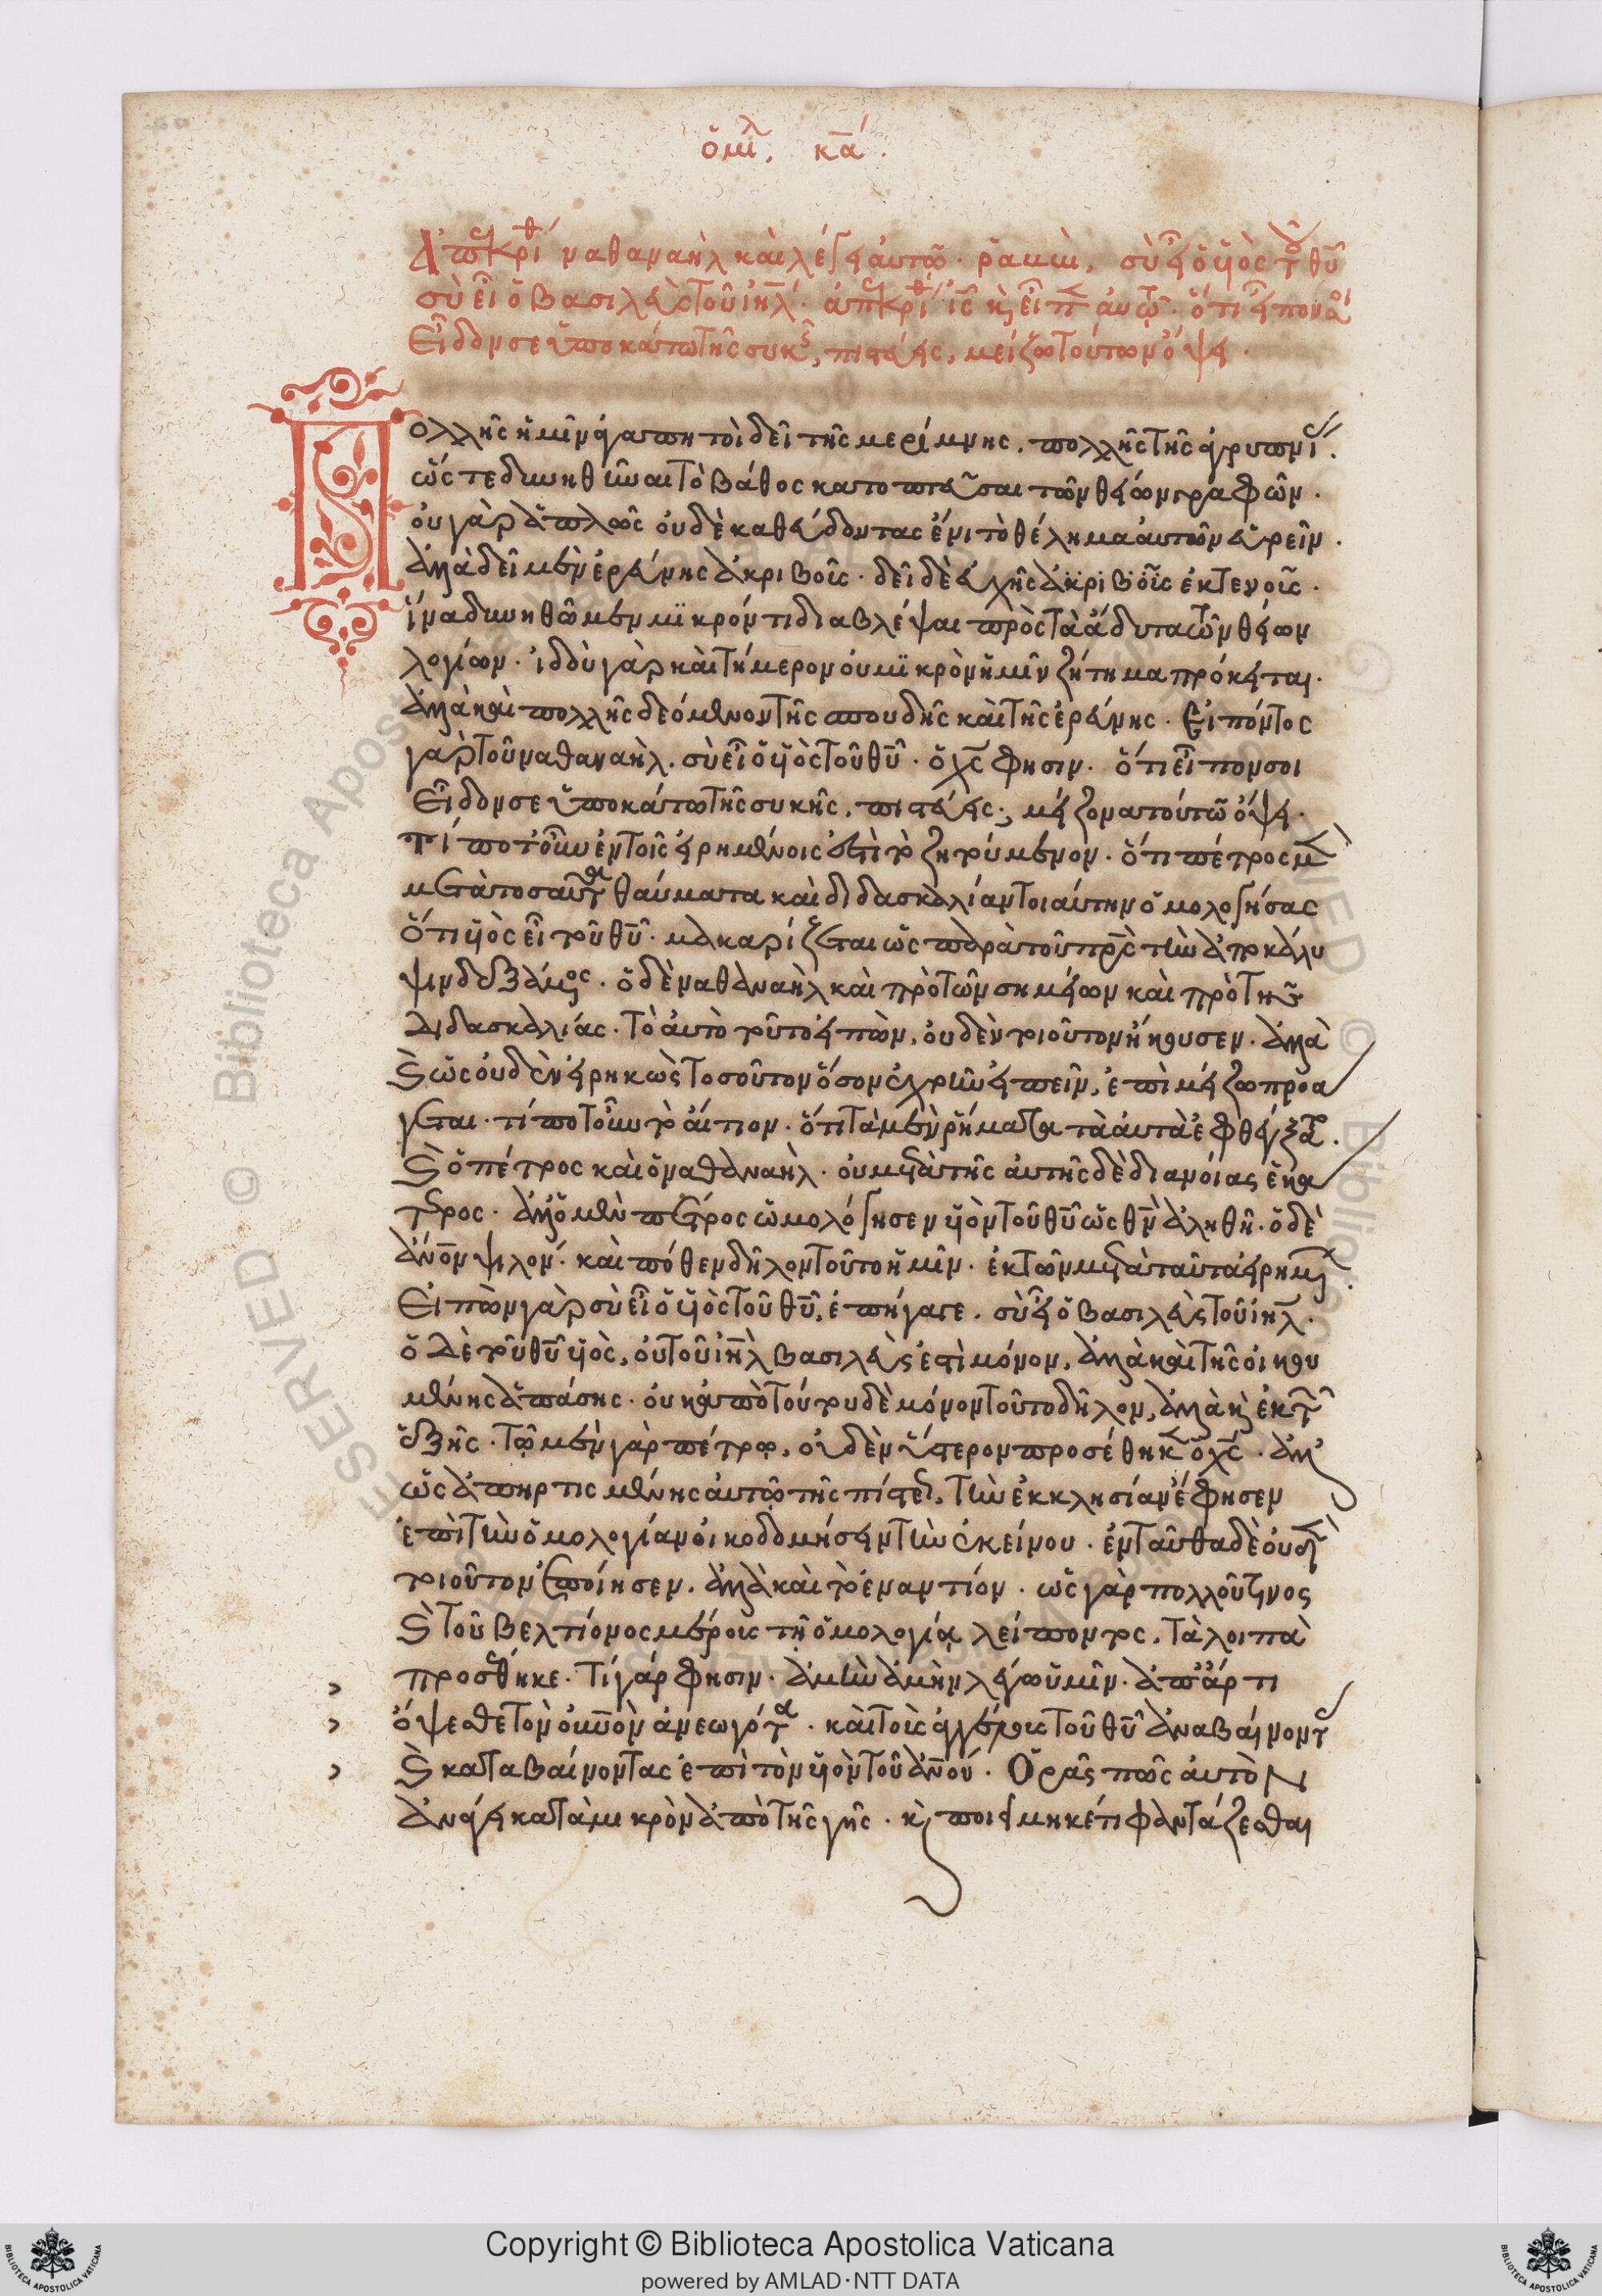 ὁμιλ. κα΄.
Ἀπεκρίθ ναθαναὴλ καὶ λέγει αὐτῶ. ῥαββὶ, σὺ εἶ ὁ υἱὸς τοῦ θῦ
σὺ εἶ ὁ βασιλεὺς τοῦ ιηλ. ἀπεκρίθ ις κ εἶπεν αὐτῶ. ὅτι εἶπόν σοι
Εἶδόν σε ὑποκάτω τῆς συκῆς, πιστεύεις, μείζω τούτων ὄψει.
Πολλῆς ἡμῖν ἀγαπητοὶ δεῖ τῆς μερίμνης, πολλῆς τῆς ἀγρυπνίας.
ὥστε δυνηθῆναι τὸ βάθος κατοπτεῦσαι τῶν θείων γραφῶν.
οὐ γὰρ ἁπλῶς οὐδὲ καθεύδοντας ἔνι τὸ θέλημα αὐτῶν εὑρεῖν.
ἀλλὰ δεῖ μὲν ἐρεύνης ἀκριβοῦς. δεῖ δὲ εὐχῆς ἀκριβοῦς ἐκτενοῦς.
ἵνα δυνηθῶμεν μικρόν τι διαβλέψαι πρὸς τὰ ἄδυτα τῶν θείων
λογίων. ἰδοὺ γὰρ καὶ τήμερον οὐ μικρὸν ἡμῖν ζήτημα πρόκειται.
ἀλλὰ καὶ πολλῆς δεόμενον τῆς σπουδῆς καὶ τῆς ἐρεύνης. Εἰπόντος
γὰρ τοῦ ναθαναὴλ. σὺ εἶ ὁ υἱὸς τοῦ θῦ. ὁ χς φησιν. ὅτι εἶπον σοι
Εἶδόν σε ὑποκάτω τῆς συκῆς, πιστεύεις; μείζονα τούτων ὄψει.
τί ποτ οὖν ἐν τοῖς εἰρημένοις ἐστὶ τὸ ζητούμενον. ὅτι πέτρος μὲν
μετὰ τοσαῦτα θαύματα καὶ διδασκαλίαν τοιαύτην ὁμολογήσας
ὅτι υἱὸς εἶ τοῦ θῦ. μακαρίζεται ὡς παρὰ τοῦ πρς τὴν ἀποκάλυ
ψιν δεξάμενος. ὁ δὲ ναθαναὴλ καὶ πρὸ τῶν σημείων καὶ πρὸ τῆς
διδασκαλίας. τὸ αὐτὸ τοῦτο εἰπὼν, οὐδὲν τοιοῦτον ἤκουσεν. ἀλλὰ
καὶ ὡς οὐδὲν εἰρηκὼς τοσοῦτον ὅσον ἐχρῆν εἰπεῖν, ἐπὶ μείζω προά
γεται. τί ποτ οὖν τὸ αἴτιον. ὅτι τὰ μὲν ῥήματα τὰ αὐτὰ ἐφθέγξατο.
καὶ ὁ πέτρος καὶ ὁ ναθαναὴλ. οὐ μετὰ τῆς αὐτῆς δὲ διανοίας ἑκά
τερος. ἀλλ ὁ μὲν πέτρος ὡμολόγησεν υἱὸν τοῦ θῦ ὡς θν ἀληθῆ. ὁ δὲ
ἄνον ψιλόν. καὶ πόθεν δῆλον τοῦτο ἡμῖν. ἐκ τῶν μετὰ ταῦτα εἰρημένων.
Εἰπὼν γὰρ σὺ εἶ ὁ υἱὸς τοῦ θῦ, ἐπήγαγε. σὺ εἶ ὁ βασιλεὺς τοῦ ιηλ.
ὁ δὲ τοῦ θῦ υἱὸς, οὐ τοῦ ιηλ βασιλεύς ἐστι μόνον, ἀλλὰ καὶ τῆς οἰκου
μένης ἁπάσης. οὐκ ἀπὸ τούτου δὲ μόνον τοῦτο δῆλον, ἀλλὰ κ ἐκ τῶν
ἑξῆς. τῷ μὲν γὰρ πέτρῳ, οὐδὲν ὕστερον προσέθηκεν ὁ χς. ἀλλ
ὡς ἀπηρτισμένης αὐτῷ τῆς πίστεως, τὴν ἐκκλησίαν ἔφησεν
ἐπὶ τὴν ὁμολογίαν οἰκοδομήσειν τὴν ἐκείνου. ἐνταῦθα δὲ οὐδὲν
τοιοῦτον ἐποίησεν. ἀλλὰ καὶ τὸ ἐναντίον. ὡς γὰρ πολλοῦ τινος
καὶ τοῦ βελτίονος μέρους τῇ ὁμολογίᾳ λείποντος, τὰ λοιπὰ
προσέθηκε. τί γάρ φησιν. ἀμὴν ἀμὴν λέγω ὑμῖν. ἀπάρτι
ὄψεσθε τὸν οὐνὸν ἀνεωγότα. καὶ τοὺς ἀγγέλους τοῦ θῦ ἀναβαίνοντας
καὶ καταβαίνοντας ἐπὶ τὸν υἱὸν τοῦ ἀνου. Ὁρᾷς πῶς αὐτὸν
ἀνάγει κατὰ μικρὸν ἀπὸ τῆς γῆς. κ ποιεῖ μηκέτι φαντάζεσθαι
Copyright © Biblioteca Apostolica Vaticana
powered by AMLAD·NTT DATA